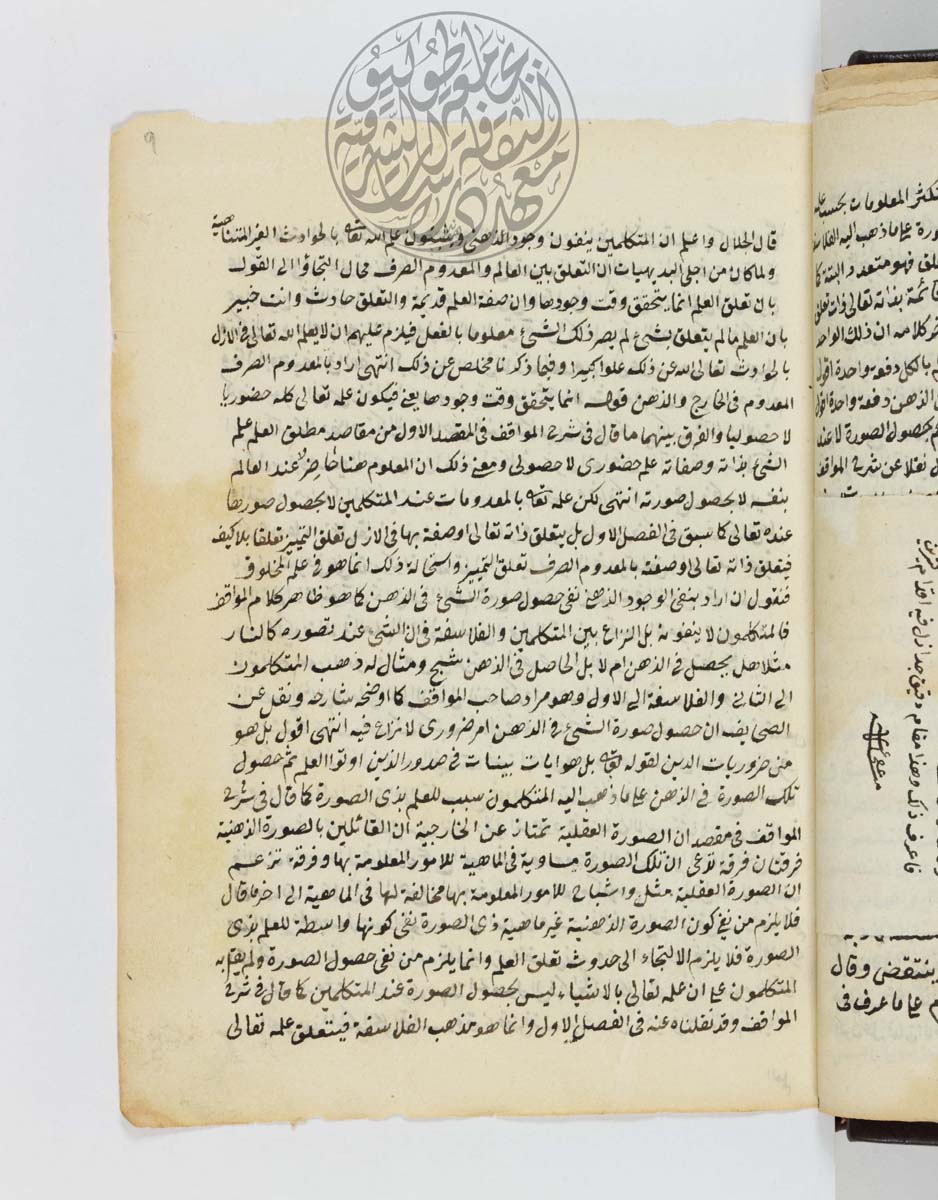 قال الجلال واعلم ان المتكلمين ينفون وجود الذهنى ويثبتون علم الله تعا بالحوادث الغير المتناهية
ولما كان من اجلى البديهيات ان التعلق بين العالم والمعدوم الصرف محال التجاؤا الى القول
بان تعلق العلم انما يتحقق وقت وجودها وان صفة العلم قديمة والتعلق حادث وانت خبير
بان العلم مالم يتعلق بشئ لم يصر ذلك الشئ معلوما بالفعل فيلزم عليهم ان لا يعلم الله تعالى فى الازل
بالحوادث تعالى الله عن ذلك علوا كبيرا وفيما ذكرنا مخلص عن ذلك انتهى اراد بالمعدوم الصرف
المعدوم فى الخارج والذهن قوله انما يتحقق وقت وجودها يعنى فيكون علمه تعالى كله حضوريا
لا حصوليا والفرق بينهما ما قال فى شرح المواقف فى المقصد الاول من مقاصد مطلق العلم علم
الشئ بذاته وصفاته علم حضورى لا حصولى ومعنى ذلك ان المعلوم هنا حاضر عند العالم
بنفسه لا بحصول صورته انتهى لكن علمه تعا بالمعدومات عند المتكلمين لا بحصول صورها
عنده تعالى كما سبق فى الفصل الاول بل يتعلق ذاته تعالى او صفته بها فى الازل تعلق التمييز تعلقا بلا كيف
فيتعلق ذاته تعالى او صفته بالمعدوم الصرف تعلق التمييز واستحالة ذلك انما هو فى علم المخلوق
فنقول ان اراد بنفى الوجود الذهنى نفى حصول صورة الشئ فى الذهن كما هو ظاهر كلام المواقف
فالمتكلمون لا ينفونه بل النزاع بين المتكلمين والفلاسفة فى ان الشئ عند تصوره كالنار
مثلا هل يحصل فى الذهن ام لا بل الحاصل فى الذهن شبح ومثال له ذهب المتكلمون
الى الثانى والفلاسفة الى الاول وهو مراد صاحب المواقف كما اوضحه شارحه ونقل عن
الصحايف ان حصول صورة الشئ فى الذهن امر ضرورى لا نزاع فيه انتهى اقول بل هو
من ضروريات الدين لقوله تعا بل هو ايات بينات فى صدور الذين اوتوا العلم ثم حصول
تلك الصورة فى الذهن على ما ذهب اليه المتكلمون سبب للعلم بذى الصورة كما قال فى شرح
المواقف فى مقصد ان الصورة العقلية تمتاز عن الخارجية ان القائلين بالصورة الذهنية
فرقتان فرقة تدعى ان تلك الصورة مساوية فى الماهية للامور المعلومة بها وفرقة تزعم
ان الصورة العقلية مثل واشباح للامور المعلومة بها مخالفة لها فى الماهية الى اخر ما قال
فلا يلزم من نفى كون الصورة الذهنية غير ماهية ذى الصورة نفى كونها واسطة للعلم بذى
الصورة فلا يلزم الالتجاء الى حدوث تعلق العلم وانما يلزم من نفى حصول الصورة ولم يقل به
المتكلمون على ان علمه تعالى بالاشياء ليس بحصول الصورة عند المتكلمين كما قال فى شرح
المواقف وقد نقلناه عنه فى الفصل الاول وانما هو مذهب الفلاسفة فيتعلق علمه تعالى
تكثر المعلومات بحسب
على ما ذهب اليه
فهو متعدد البتة
بذاته تعالى
كلامه ان ذلك الواحد
بالكل دفعة واحدة اقول
الذهن دفعة واحدة اقول
حصول الصورة لا عند
نقلا عن شرح المواقف
وهذا مقام دقيق جدا زل فيه اقدام
فاعرف ذلك
ينتقض وقال
على ما عرف فى